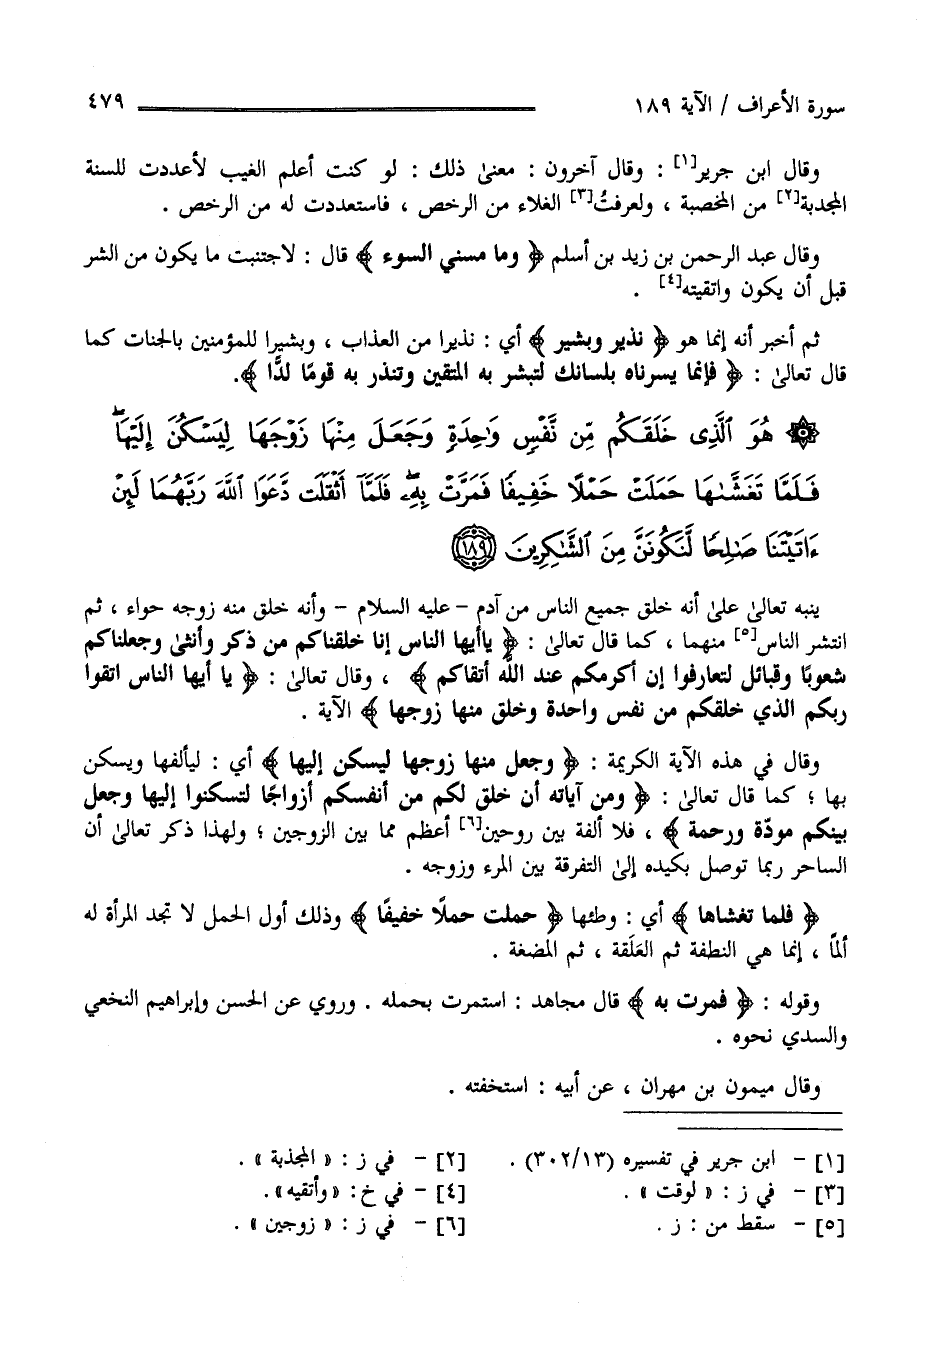 سورة الأعراف / الآية ١٨٩ ٤٧٩
وقال ابن جرير[١] : وقال آخرون : معنىٰ ذلك : لو كنت أعلم الغيب لأعددت للسنة
المجدبة[٢] من المخصبة ، ولعرفتُ[٣] الغلاء من الرخص ، فاستعددت له من الرخص .
وقال عبد الرحمن بن زيد بن أسلم ﴿ وما مسني السوء ﴾ قال : لاجتنبت ما يكون من الشر
قبل أن يكون واتقيته[٤] .
ثم أخبر أنه إنما هو ﴿ نذير وبشير ﴾ أي : نذيرا من العذاب ، وبشيرا للمؤمنين بالجنات كما
قال تعالىٰ : ﴿ فإنما يسرناه بلسانك لتبشر به المتقين وتنذر به قومًا لدًّا ﴾.
۞ هُوَ ٱلَّذِى خَلَقَكُم مِّن نَّفْسٍ وَٰحِدَةٍ وَجَعَلَ مِنْهَا زَوْجَهَا لِيَسْكُنَ إِلَيْهَاۖ
فَلَمَّا تَغَشَّىٰهَا حَمَلَتْ حَمْلًا خَفِيفًا فَمَرَّتْ بِهِۦۖ فَلَمَّآ أَثْقَلَت دَّعَوَا ٱللَّهَ رَبَّهُمَا لَئِنْ
ءَاتَيْتَنَا صَٰلِحًا لَّنَكُونَنَّ مِنَ ٱلشَّٰكِرِينَ ١٨٩
ينبه تعالىٰ علىٰ أنه خلق جميع الناس من آدم – عليه السلام – وأنه خلق منه زوجه حواء ، ثم
انتشر الناس[٥] منهما ، كما قال تعالىٰ : ﴿ ياأيها الناس إنا خلقناكم من ذكر وأنثىٰ وجعلناكم
شعوبًا وقبائل لتعارفوا إن أكرمكم عند الله أتقاكم ﴾ ، وقال تعالىٰ : ﴿ يا أيها الناس اتقوا
ربكم الذي خلقكم من نفس واحدة وخلق منها زوجها ﴾ الآية .
وقال في هذه الآية الكريمة : ﴿ وجعل منها زوجها ليسكن إليها ﴾ أي : ليألفها ويسكن
بها ؛ كما قال تعالىٰ : ﴿ ومن آياته أن خلق لكم من أنفسكم أزواجًا لتسكنوا إليها وجعل
بينكم مودّة ورحمة ﴾ ، فلا ألفة بين روحين[٦] أعظم مما بين الزوجين ؛ ولهذا ذكر تعالىٰ أن
الساحر ربما توصل بكيده إلىٰ التفرقة بين المرء وزوجه .
﴿ فلما تغشاها ﴾ أي : وطئها ﴿ حملت حملًا خفيفًا ﴾ وذلك أول الحمل لا تجد المرأة له
ألمًا ، إنما هي النطفة ثم العَلَقة ، ثم المضغة .
وقوله : ﴿ فمرت به ﴾ قال مجاهد : استمرت بحمله . وروي عن الحسن وإبراهيم النخعي
والسدي نحوه .
وقال ميمون بن مهران ، عن أبيه : استخفته .
[١] – ابن جرير في تفسيره (٣٠٢/١٣) . [٢] – في ز : « المجذبة » .
[٣] – في ز : « لوقت » . [٤] – في خ: «وأتقيه».
[٥] – سقط من : ز . [٦] – في ز : « زوجين » .